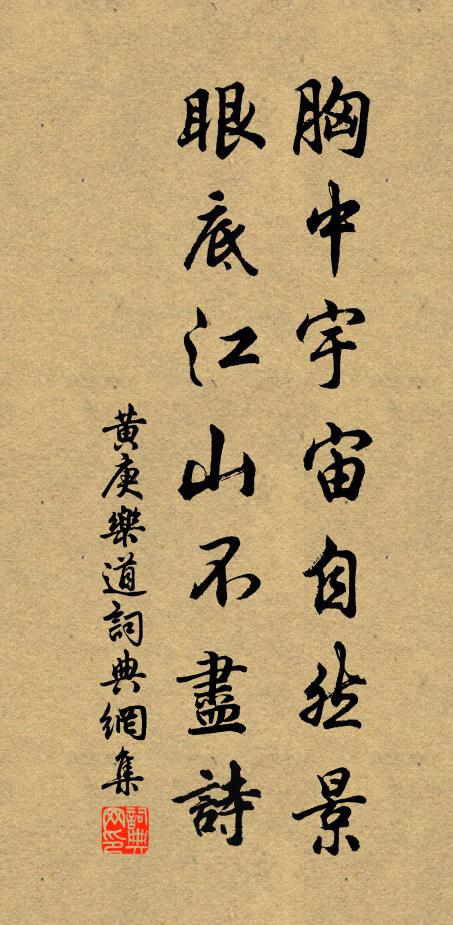 胸中宇宙自然景
眼底江山不盡詩
黃庚樂道詞典網集
詞典網印